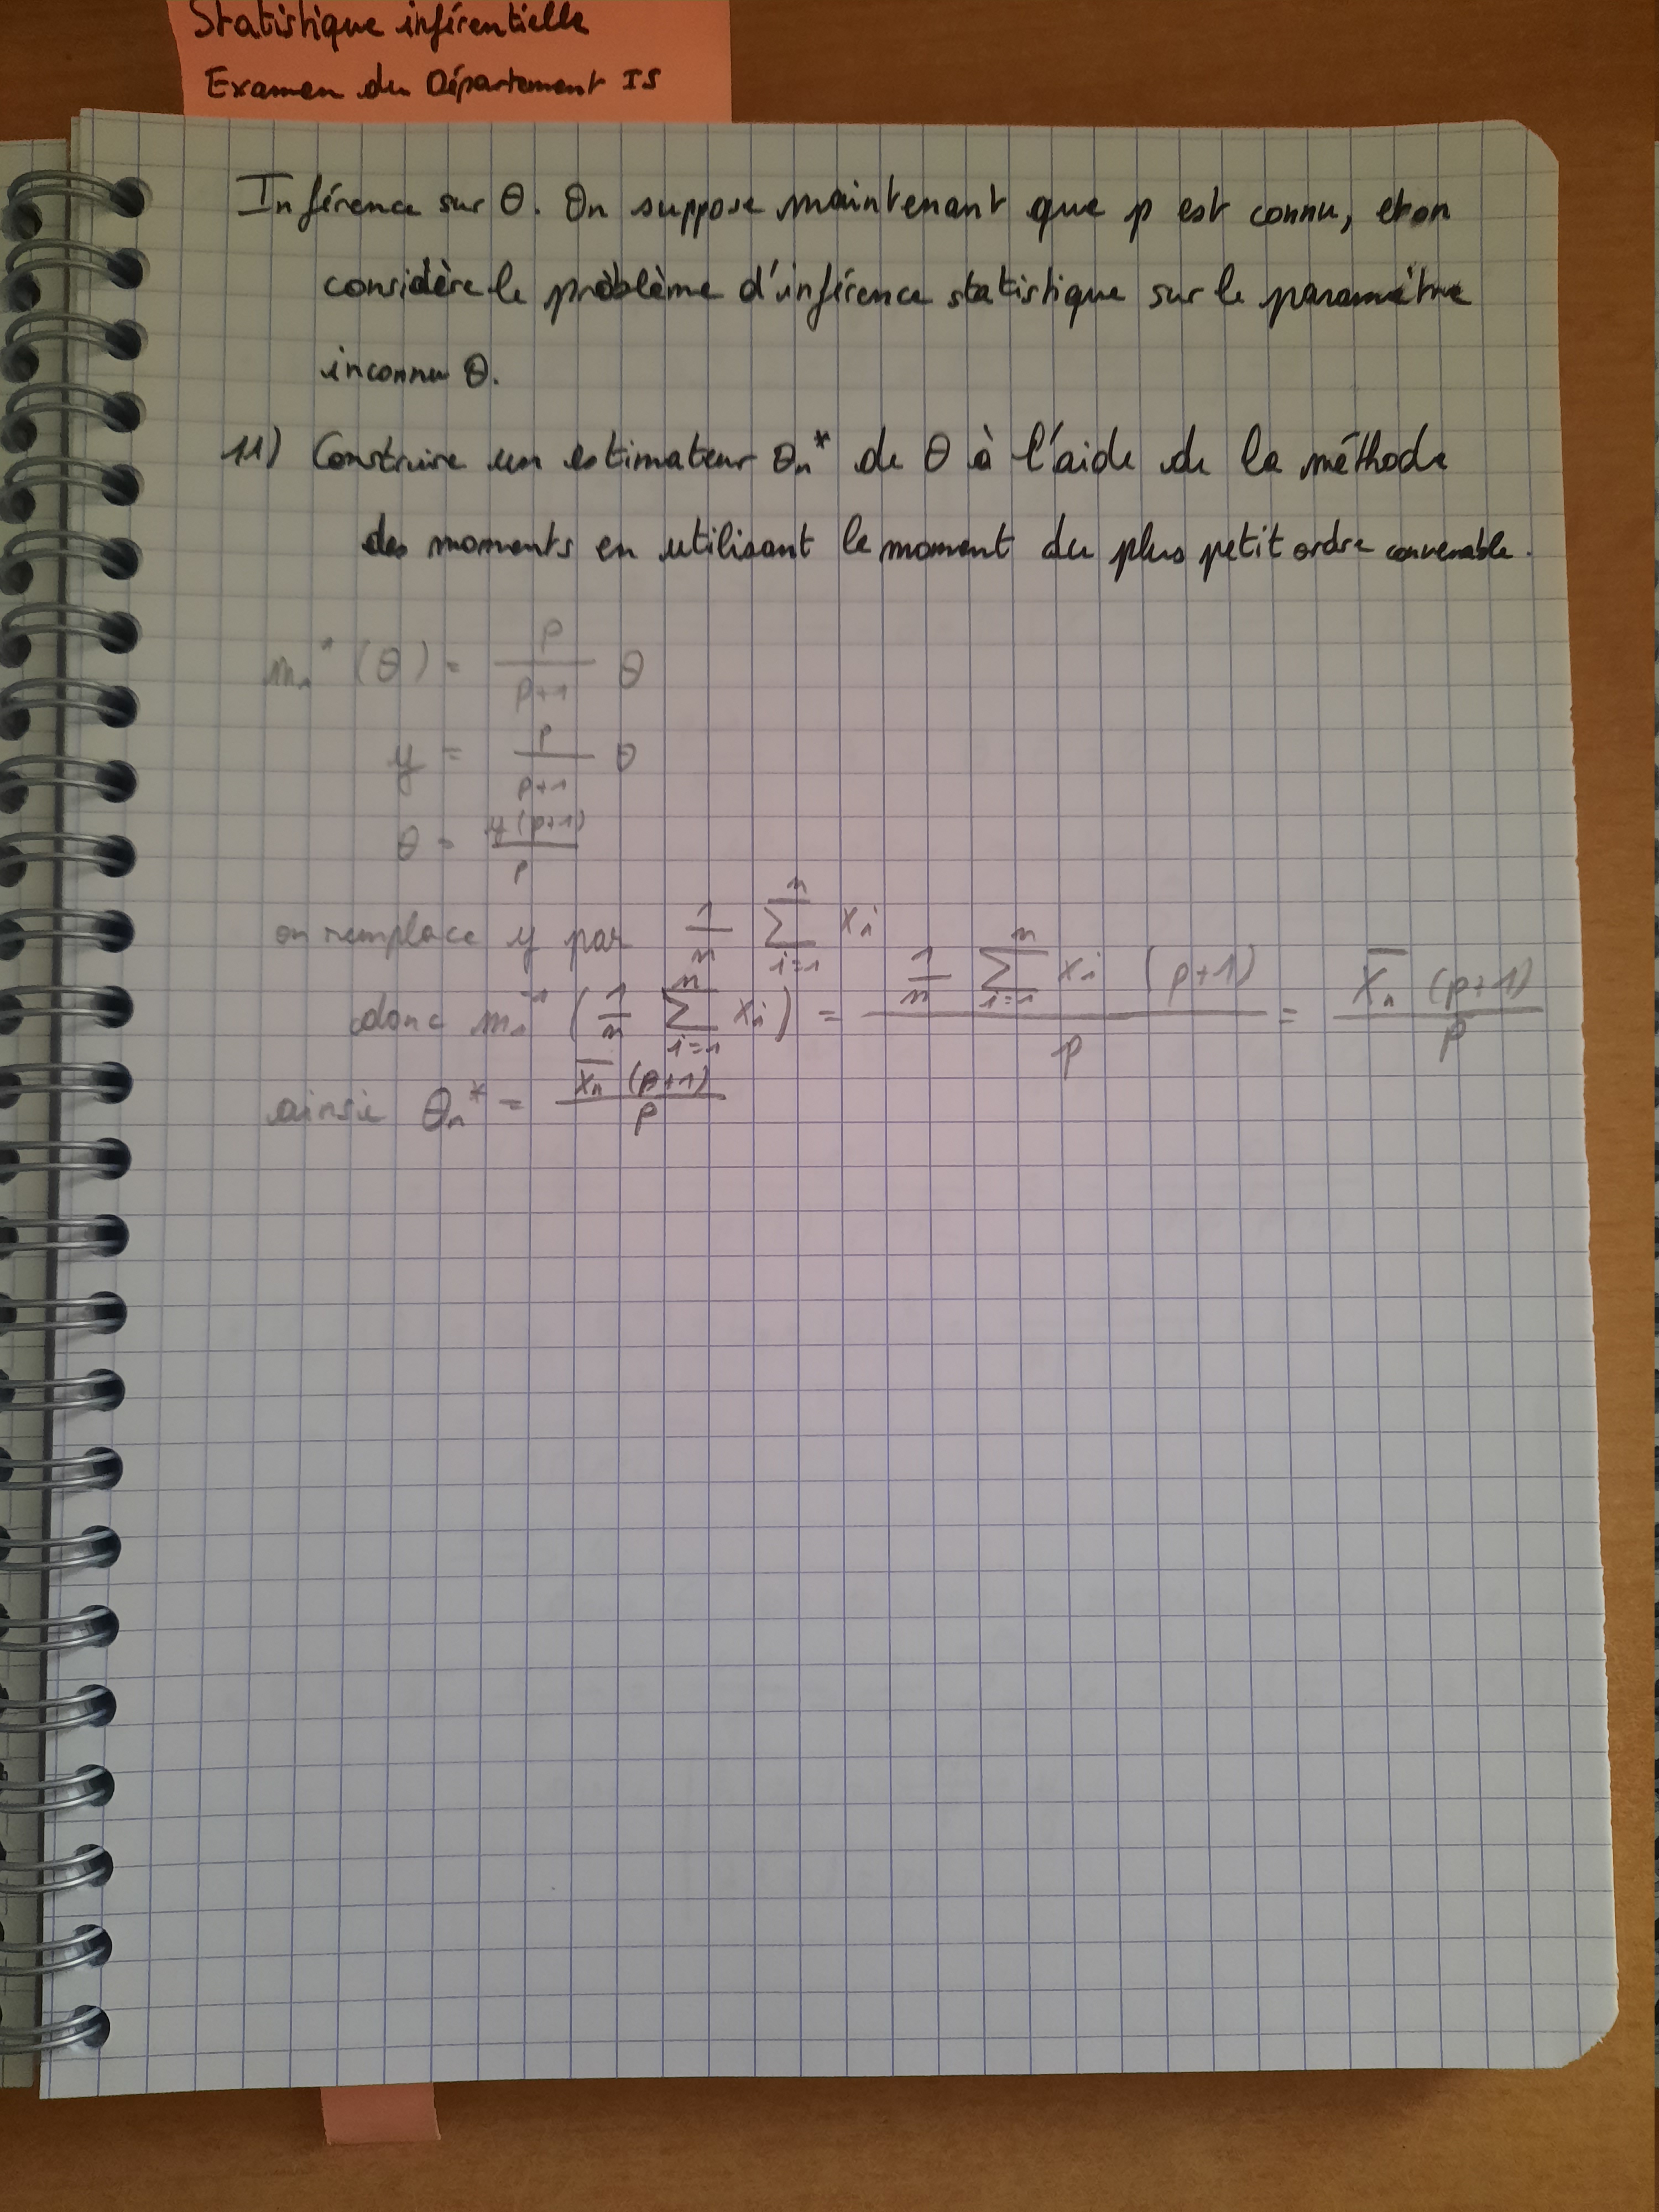 Statistique inférentielle
Examen du Département IS
Inférence sur θ. On suppose maintenant que p est connu, et on
considère le problème d'inférence statistique sur le paramètre
inconnu θ.
11) Construire un estimateur θn* de θ à l'aide de la méthode
des moments en utilisant le moment du plus petit ordre convenable.
m₁*(θ) = p/(p+1) θ
y = p/(p+1) θ
θ = y(p+1)/p
on remplace y par 1/n Σ_{i=1}^{n} xi
donc m₁⁻¹ (1/n Σ_{i=1}^{n} xi) = (1/n Σ_{i=1}^{n} xi (p+1))/p = X̄n (p+1)/p
ainsi θn* = X̄n (p+1)/p